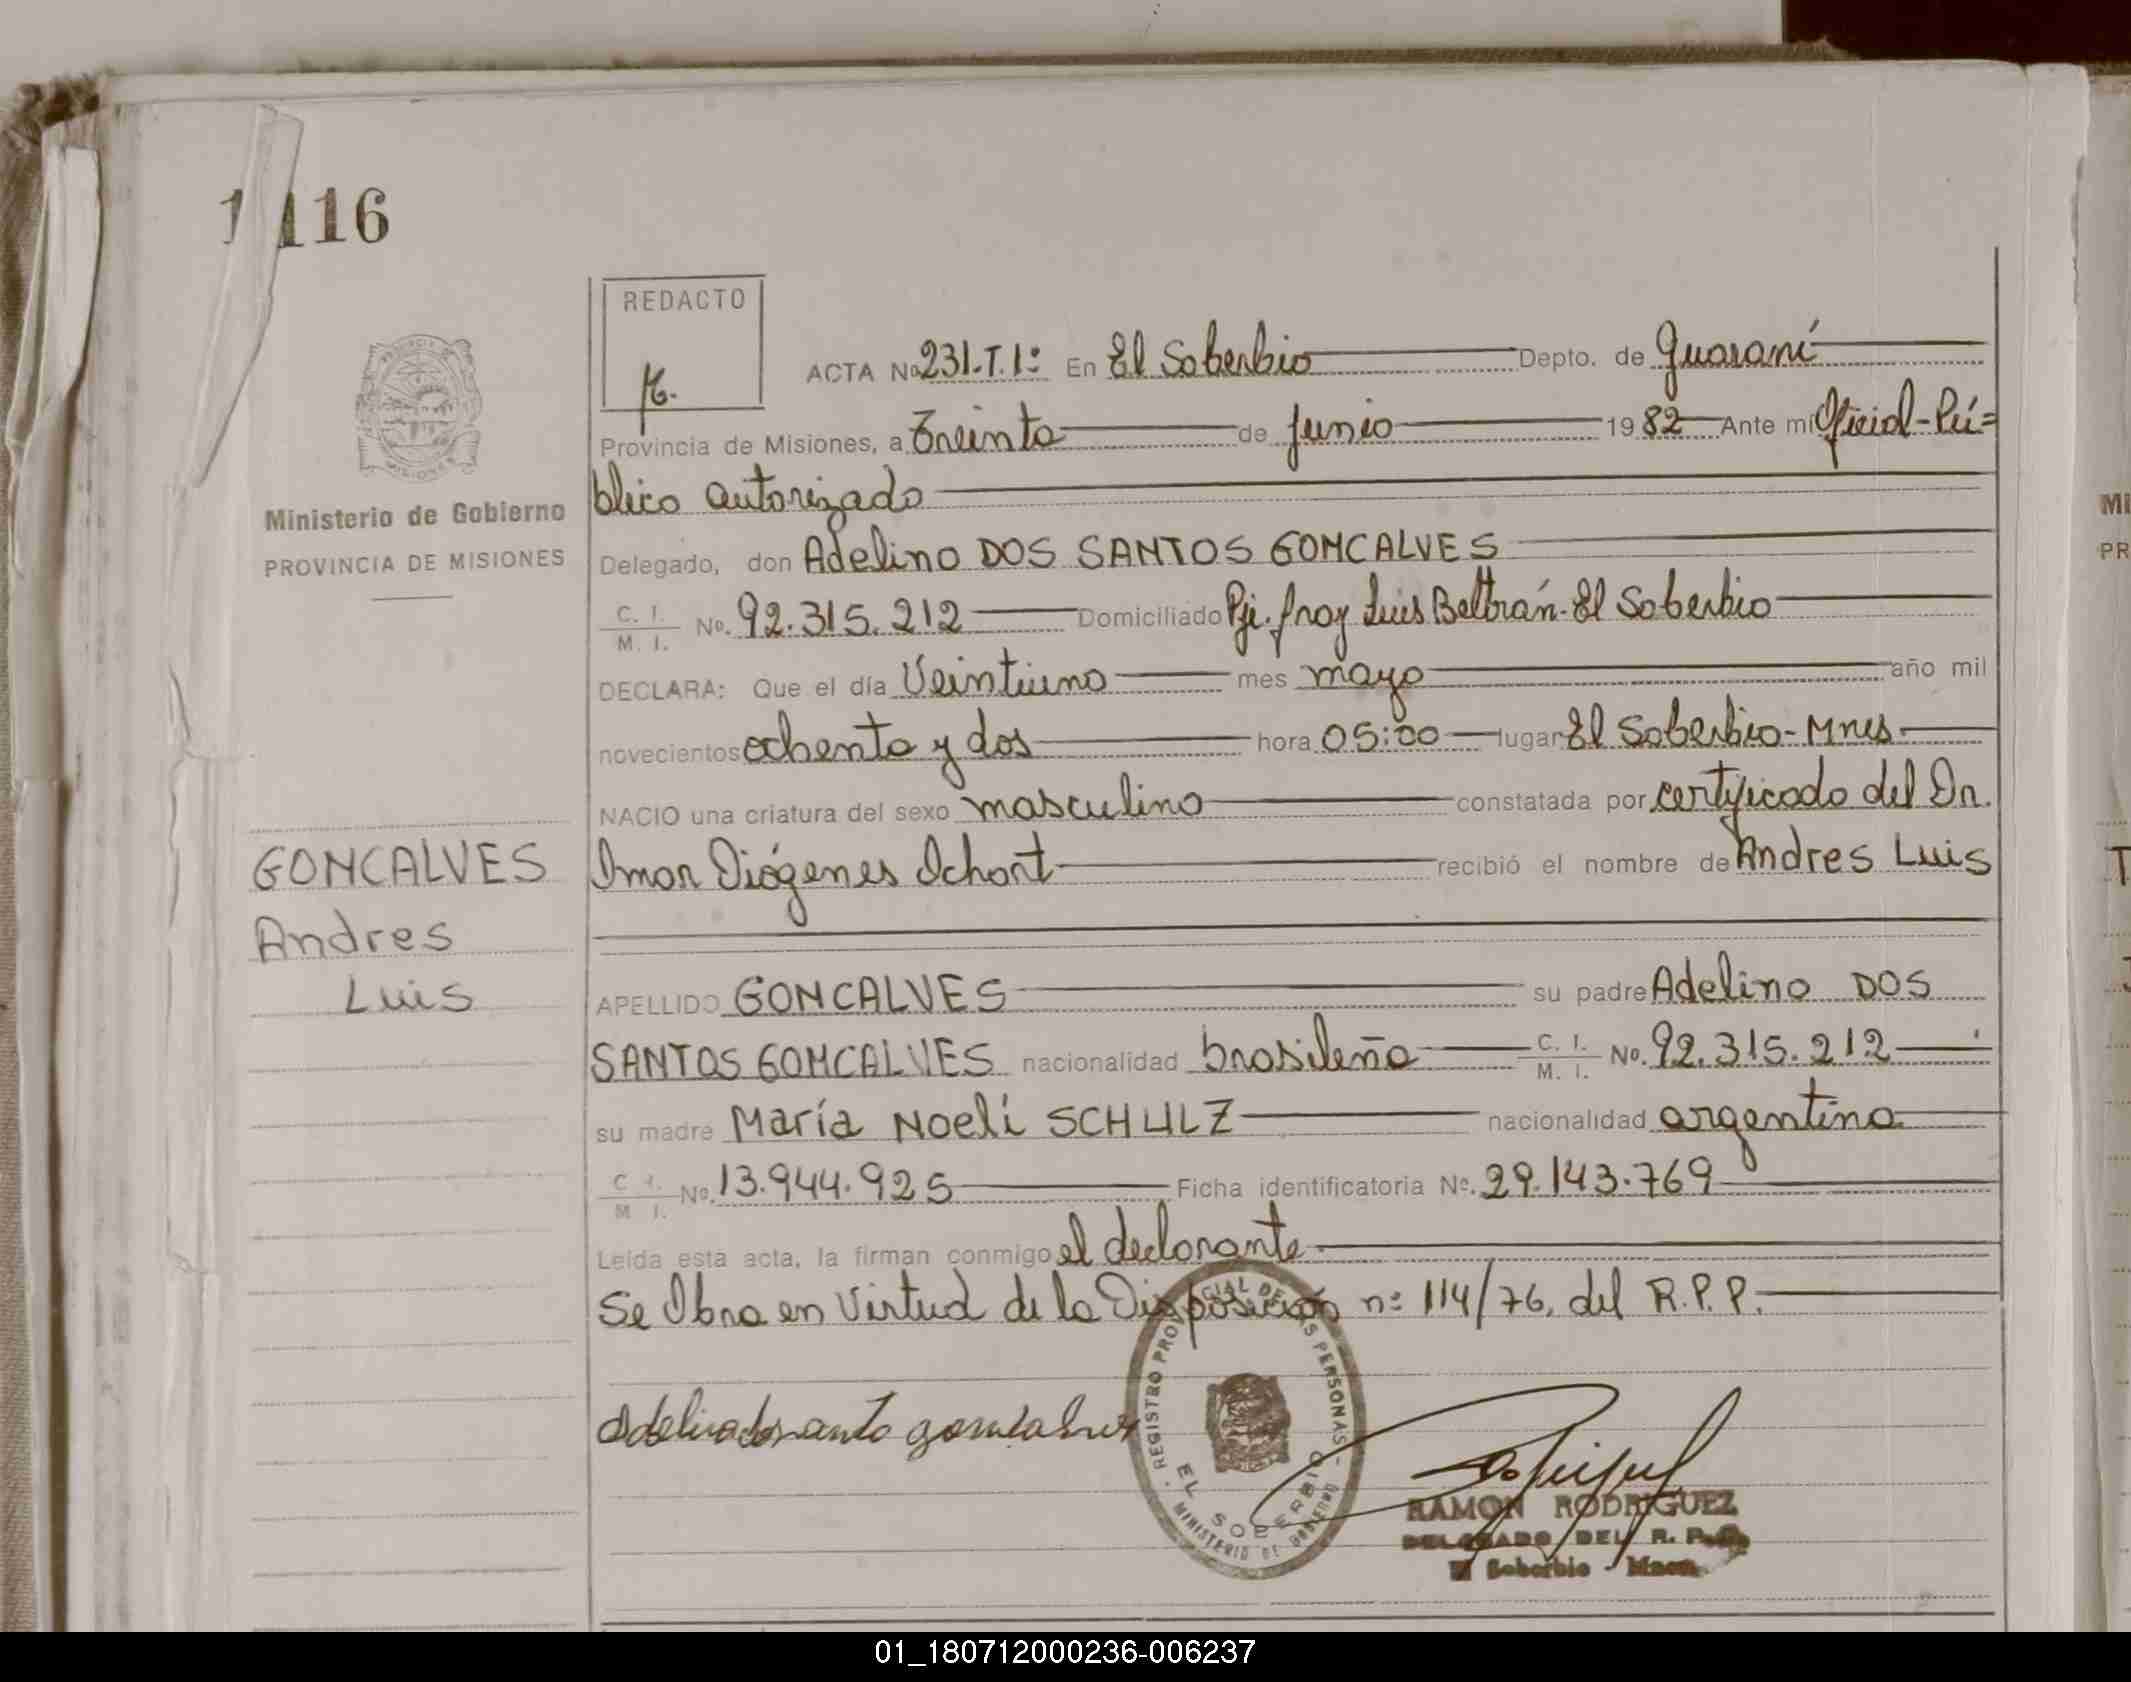 1116
REDACTO
ACTA No 231-T.1º En El Soberbio Depto. de Guaraní
Provincia de Misiones, a Treinta de Junio 1982 Ante mí Oficial-Pú=
blico autorizado
Ministerio de Gobierno
PROVINCIA DE MISIONES
Delegado, don Adelino DOS SANTOS GONCALVES
C. I. / M. I. No. 92.315.212 Domiciliado Pje. fray Luis Beltrán-El Soberbio
DECLARA: Que el día Veintiuno mes mayo año mil
novecientos ochenta y dos hora 05:00 lugar El Soberbio-Mnes
NACIO una criatura del sexo masculino constatada por certificado del Dr.
Diógenes recibió el nombre de Andres Luis
GONCALVES
Andres
Luis
APELLIDO GONCALVES su padre Adelino DOS
SANTOS GONCALVES nacionalidad brasileño C. I. / M. I. No. 92.315.212
su madre María Noelí SCHULZ nacionalidad argentina
C. I. / M. I. No. 13.944.925 Ficha identificatoria Nº. 29.143.769
Leída esta acta, la firman conmigo el declarante
Se Obra en Virtud de la Disposición nº 114/76, del R.P.P.
REGISTRO PROVINCIAL DE LAS PERSONAS
EL SOBERBIO
MINISTERIO DE GOBIERNO
RAMON RODRIGUEZ
DELEGADO DEL R. P. P.
El Soberbio - Mnes.
01_180712000236-006237